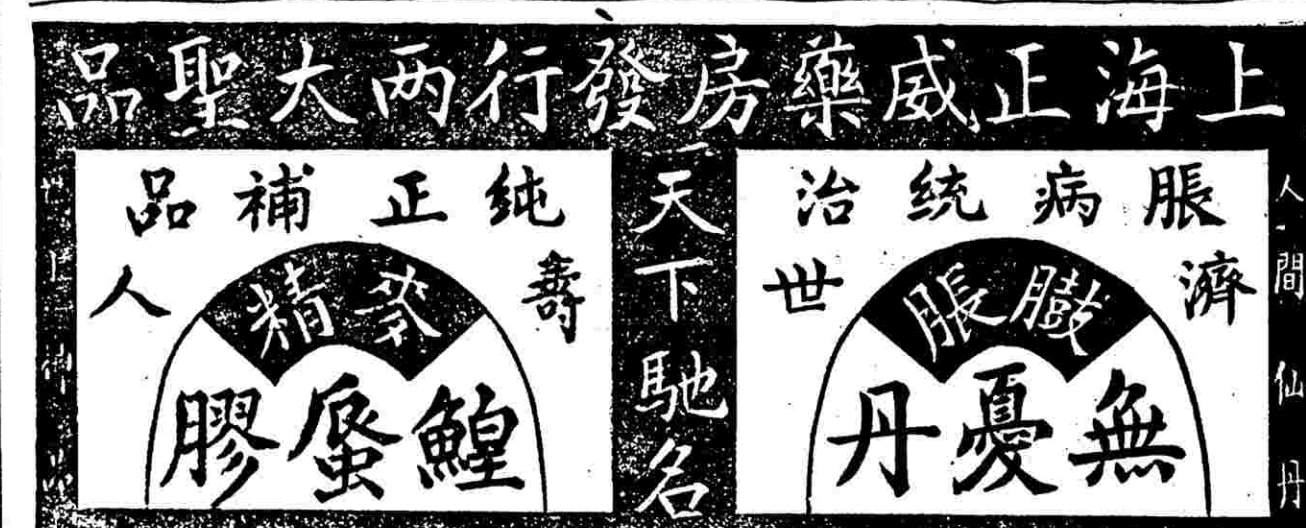 上海正威藥房發行两大聖品
人間仙丹
脹病統治
濟世
臌脹
無憂丹
天下馳名
純正補品
壽人
麥精
鰉蜃膠